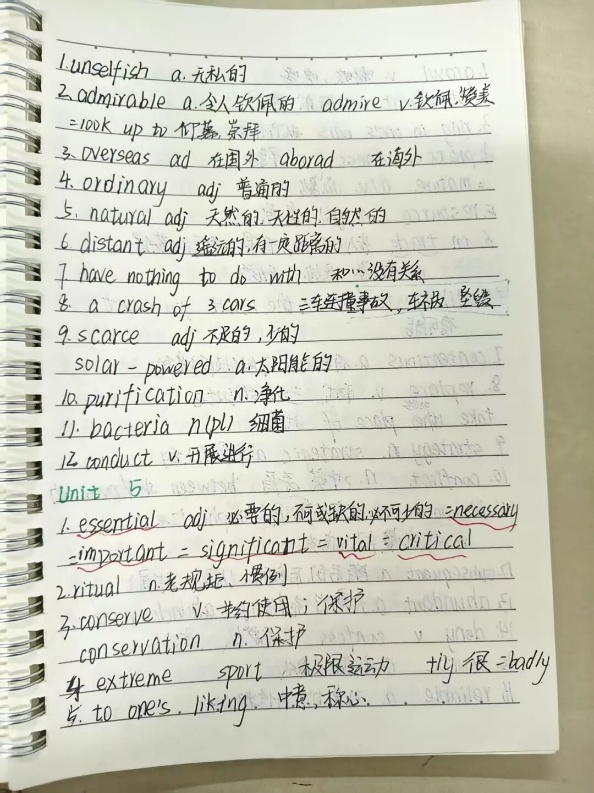 1. unselfish a. 无私的
2. admirable a. 令人钦佩的 admire v. 钦佩,赞美
=look up to 仰慕,崇拜
3. overseas ad 在国外 aborad 在海外
4. ordinary adj 普通的
5. natural adj 天然的.天性的.自然的
6. distant adj 遥远的.有一定距离的
7 have nothing to do with 和…没有关系
8. a crash of 3 cars 三车连撞事故, 坠毁
9. scarce adj 不足的,少的
solar-powered a. 太阳能的
10. purification n. 净化
11. bacteria n(pl) 细菌
12. conduct v. 开展进行
Unit 5
1. essential adj 必要的,不可或缺的.必不可少的 =necessary
=important = significant = vital = critical
2. ritual n. 老规矩.惯例
3. conserve v. 节约使用;保护
conservation n. 保护
4. extreme sport 极限运动 +ly 很 =badly
5. to one's liking 中意,称心.